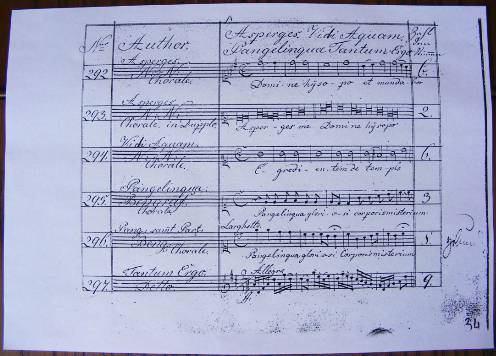 Nro
Author.
Asperges. Vidi Aquam.
Pangelingua Tantum Ergo.
292
Asperges.
Chorale.
Domi - ne hÿso - po et munda
6.
293.
Asperges.
Chorale. in Dupplo
Asper - ges me Domine hÿsopo
2.
294.
Vidi Aquam.
Chorale.
E - gredi - en - tem de tem - plo
6.
295.
Pangelingua.
Chorale
Pangelingua glori - o - si corporis misterium
3
296.
Pang. 
Chorale.
Larghetto.
Pangelingua gloriosi Corporis misterium
1.
297.
Tantum Ergo.
Detto
Allegro
9.
34